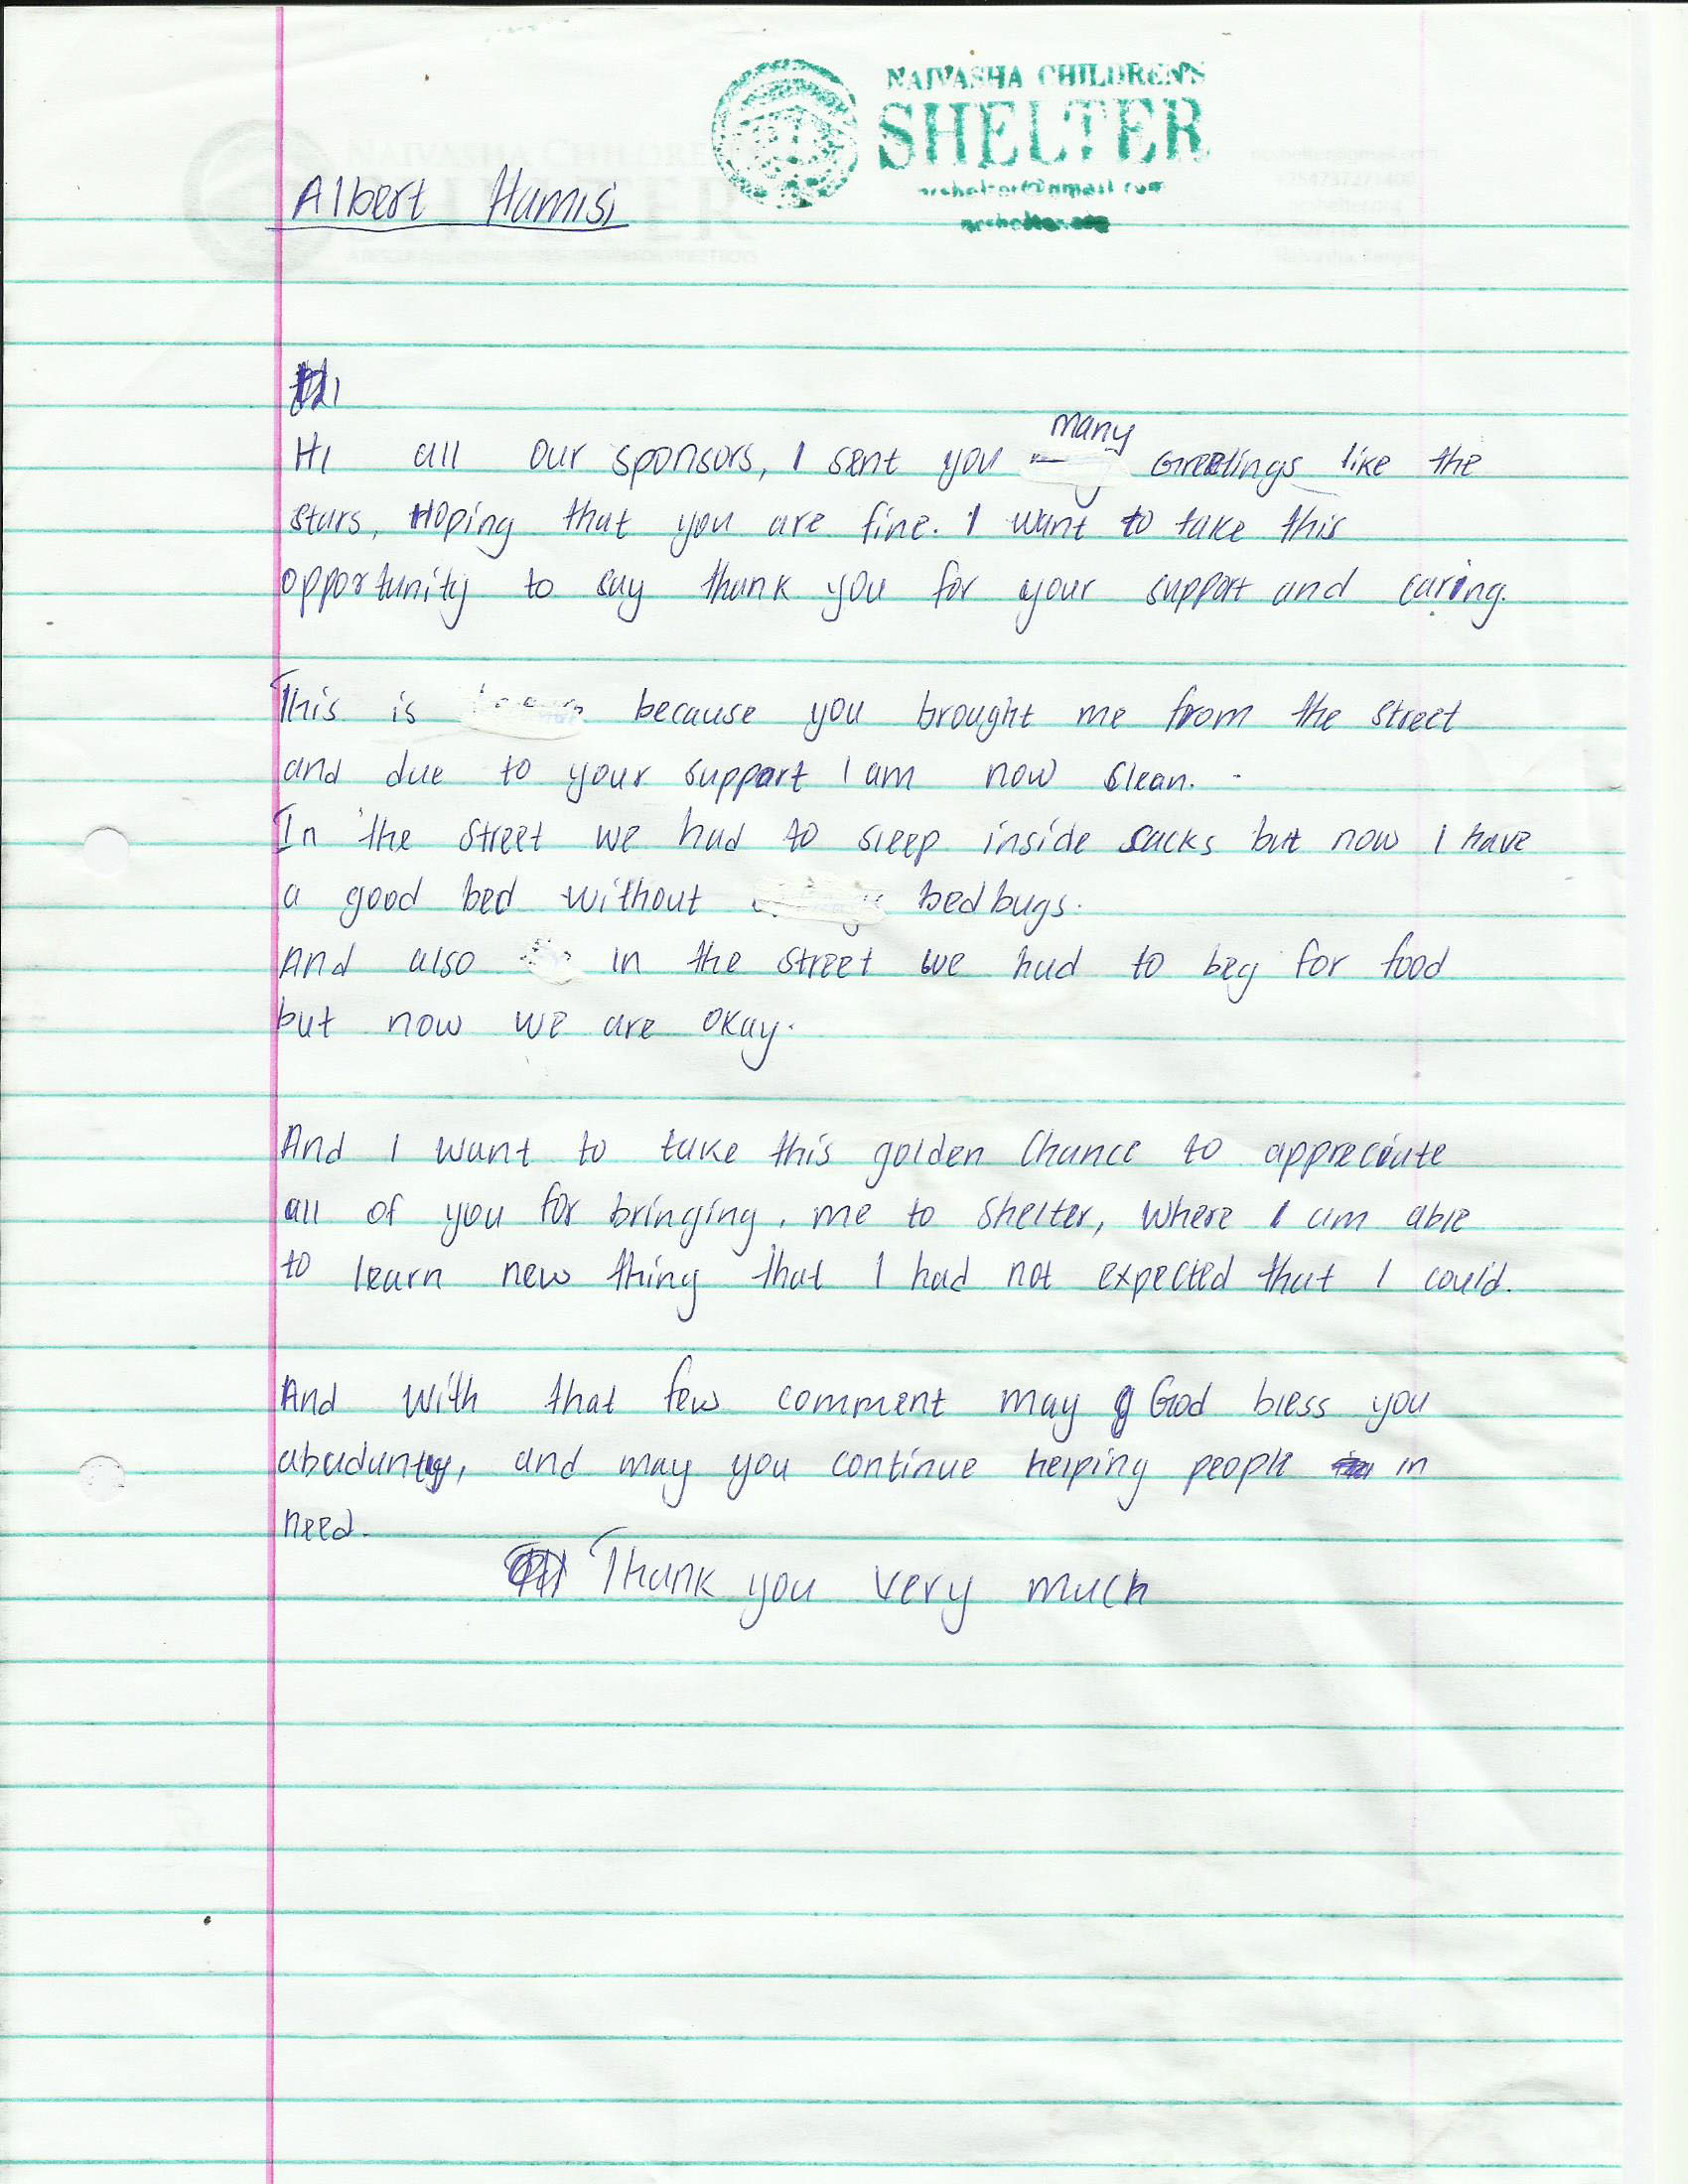 NAIVASHA CHILDREN'S
SHELTER
ncshelter@gmail.com
ncshelter.org
Albert Hamisi
Hi all our sponsors, I sent you many Greetings like the
stars, Hoping that you are fine. I want to take this
opportunity to say thank you for your support and caring.
This is because you brought me from the street
and due to your support I am now clean.
In the street we had to sleep inside sacks but now I have
a good bed without bedbugs.
And also in the street we had to beg for food
but now we are okay.
And I want to take this golden Chance to appreciate
all of you for bringing, me to shelter, where I am able
to learn new thing that I had not expected that I could.
And with that few comment may God bless you
abaduntly, and may you continue helping people in
need.
Thank you very much